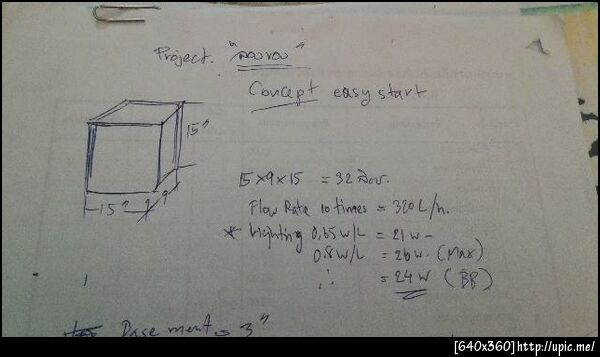 Project. "ลองของ"
Concept easy start
15"
15"
9"
15×9×15 = 32 ลิตร.
Flow Rate 10 times = 320 L/h.
* Lighting 0.65 W/L = 21 W
0.8 W/L = 26 W. (Max)
∴ = 24 W (BP)
Basement = 3"
[640x360]http://upic.me/